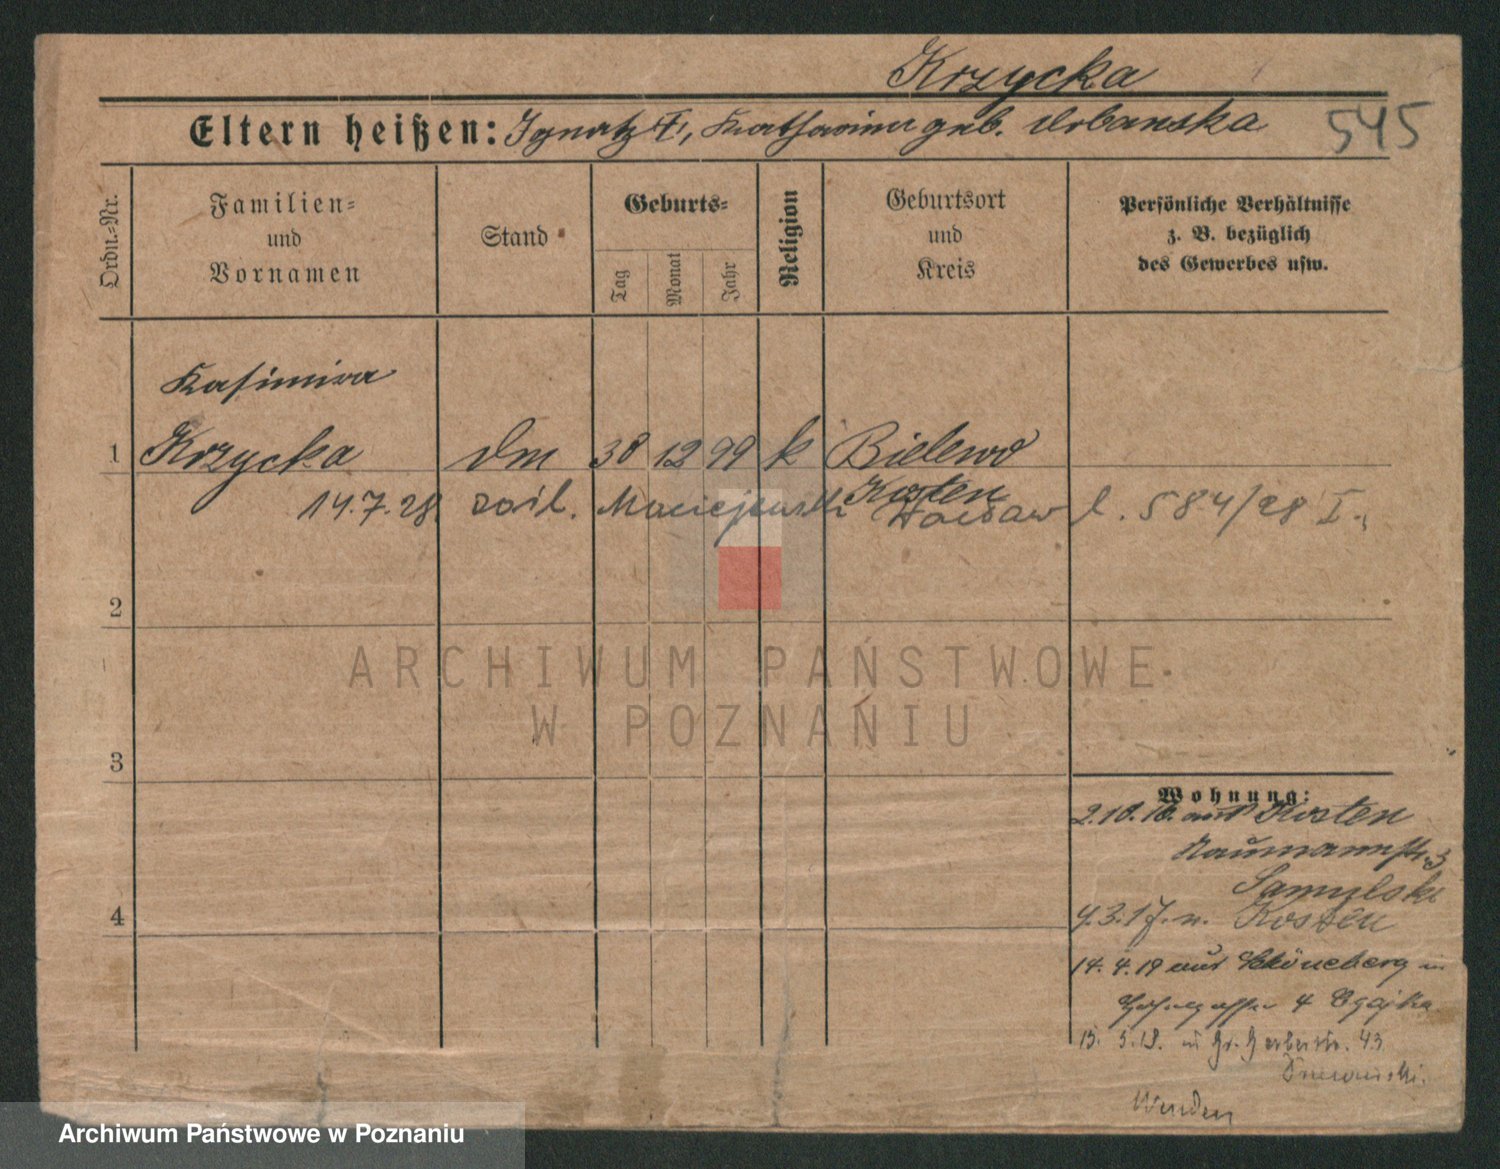 Krzycka
Eltern heißen: Ignatz †, Katharina geb. Urbanska
545
Ordn.-Nr.
Familien-
und
Vornamen
Stand
Geburts-
Tag
Monat
Jahr
Religion
Geburtsort
und
Kreis
Persönliche Verhältnisse
z. B. bezüglich
des Gewerbes usw.
Kasimira
1 Krzycka 12 99 k Bielewo
Kosten
14.7.28 Maciejewski Wacław l. 584/28 I.
2
3
4
Wohnung:
aus Kosten
Naumannstr. 3
4.3.17. n. Kosten
14. 4. 19 aus Schöneberg in
4
15. 5. 19. Gr. Gerberstr. 43
Wenden
ARCHIWUM PAŃSTWOWE
W POZNANIU
Archiwum Państwowe w Poznaniu